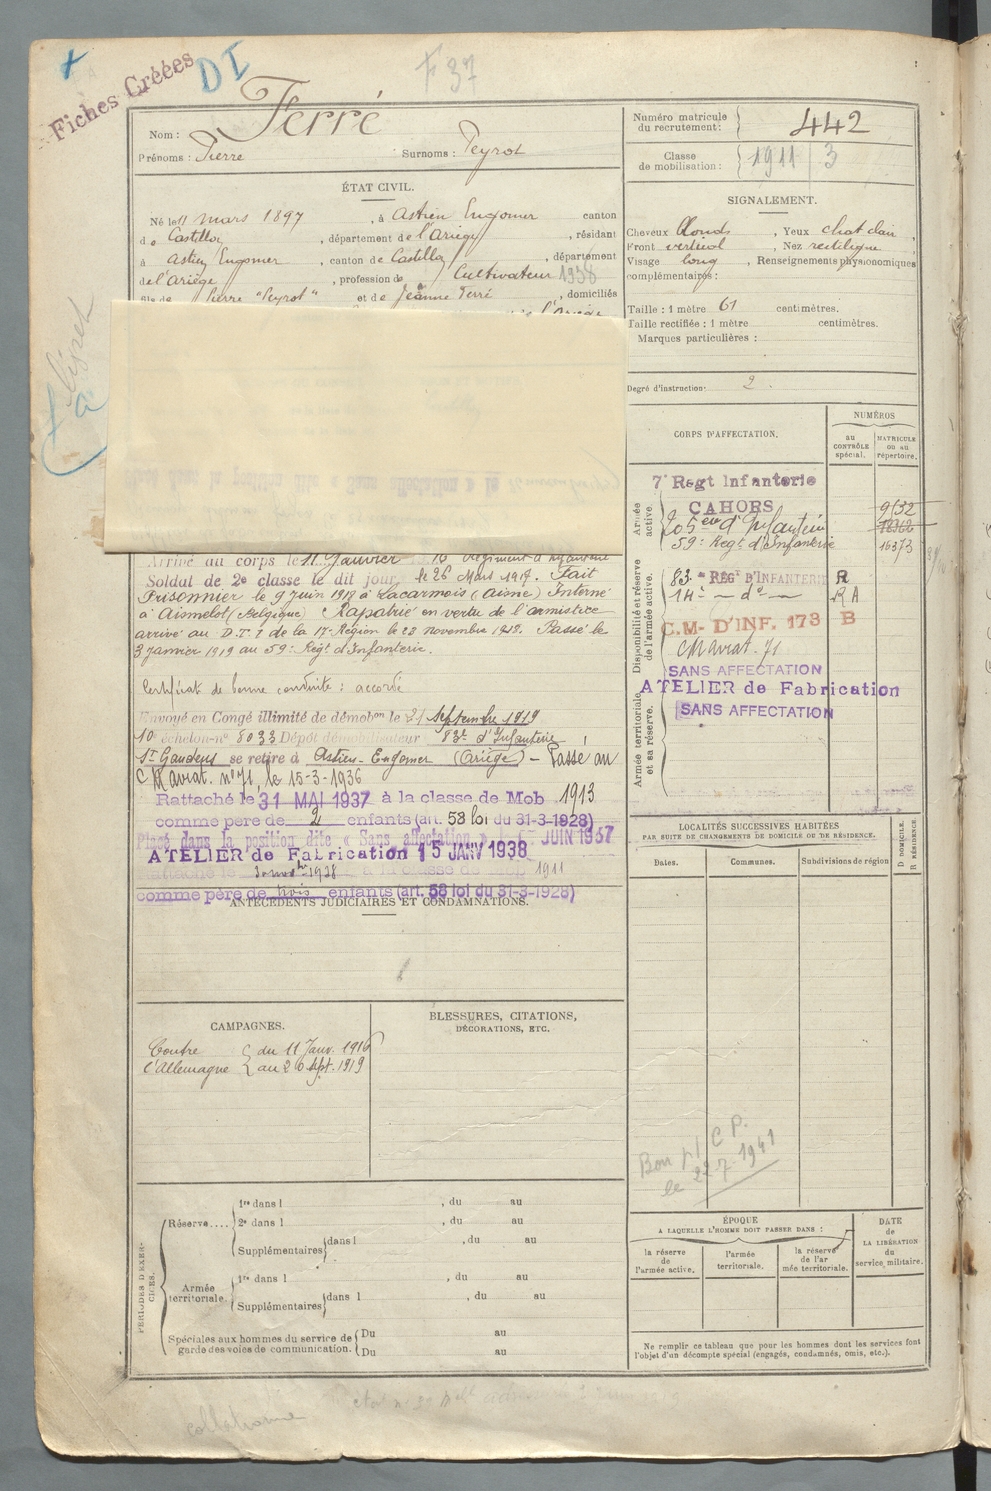 Fiches Créées
DI
F 37
Nom : Ferré
Prénoms : Pierre Surnoms : Peyrot
Numéro matricule du recrutement : 442
Classe de mobilisation : 1911 | 3
ÉTAT CIVIL.
Né le 11 mars 1897, à Astien Engomer canton
de Castillon, département de l'Ariège, résidant
à Astien Engomer, canton de Castillon, département
de l'Ariège, profession de Cultivateur 1938
fils de Pierre "Peyrot" et de Jeanne Ferré, domiciliés
SIGNALEMENT.
Cheveux blonds, Yeux chat clair,
Front vertical, Nez rectiligne
Visage long, Renseignements physionomiques
complémentaires :
Taille : 1 mètre 61 centimètres.
Taille rectifiée : 1 mètre centimètres.
Marques particulières :
Degré d'instruction : 2.
CORPS D'AFFECTATION.
NUMÉROS
AU CONTRÔLE spécial.
MATRICULE ou au répertoire.
Armée active.
7e Régt Infanterie
CAHORS 9632
205eme d'Infanterie
59e Regt d'Infanterie 16373
Disponibilité et réserve de l'armée active.
83e REGt D'INFANTERIE R
14e — do — RA
C.M- D'INF. 173 B
CM aviat. 71
SANS AFFECTATION
ATELIER de Fabrication
Armée territoriale et sa réserve.
SANS AFFECTATION
livret
Arrivé au corps le 11 Janvier
Soldat de 2e classe le dit jour, le 26 Mars 1917. Fait
Prisonnier le 9 juin 1918 à Lacarmois (Aisne) Interné
à Aismelot (Belgique) Rapatrié en vertu de l'armistice
arrivé au D.T.1 de la 17e Région le 28 novembre 1918. Passé le
3 janvier 1919 au 59e Régt d'Infanterie.
Certificat de bonne conduite : accordé
Envoyé en Congé illimité de démobon le 21 Septembre 1919
10e échelon no 8033 Dépôt démobilisateur 83e d'Infanterie
St Gaudens se retire à Astien-Engomer (Ariège) — Passé au
C M aviat. no 71, le 15-3-1936
Rattaché le 31 MAI 1937 à la classe de Mob 1913
comme père de 2 enfants (art. 58 loi du 31-3-1928)
Placé dans la position dite « Sans affectation » JUIN 1937
ATELIER de Fabrication 15 JANV 1938
Rattaché le 1938 à la classe de Mob 1911
comme père de trois enfants (art. 58 loi du 31-3-1928)
ANTÉCÉDENTS JUDICIAIRES ET CONDAMNATIONS.
LOCALITÉS SUCCESSIVES HABITÉES
PAR SUITE DE CHANGEMENTS DE DOMICILE OU DE RÉSIDENCE.
Dates. Communes. Subdivisions de région
D DOMICILE.
R RÉSIDENCE.
CAMPAGNES.
Contre du 11 Janv. 1916
l'Allemagne au 20 Sept. 1919
BLESSURES, CITATIONS,
DÉCORATIONS, ETC.
Bon p/ C P.
le 22-7-1941
PÉRIODES D'EXERCICES.
Réserve....
1re dans l , du au
2e dans l , du au
Supplémentaires dans l , du au
Armée territoriale.
1re dans l , du au
Supplémentaires dans l , du au
Spéciales aux hommes du service de garde des voies de communication.
Du au
Du au
ÉPOQUE
A LAQUELLE L'HOMME DOIT PASSER DANS :
la réserve de l'armée active.
l'armée territoriale.
la réserve de l'armée territoriale.
DATE de LA LIBÉRATION du service militaire.
Ne remplir ce tableau que pour les hommes dont les services font
l'objet d'un décompte spécial (engagés, condamnés, omis, etc.).
collationné